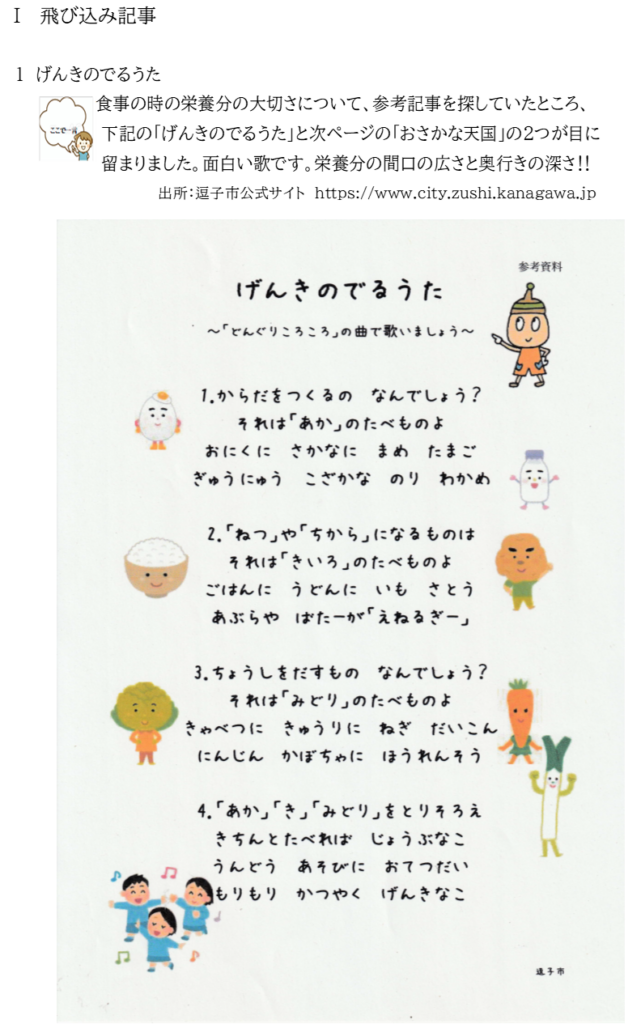 Ⅰ　飛び込み記事
1　げんきのでるうた
ここで一言
食事の時の栄養分の大切さについて、参考記事を探していたところ、
下記の「げんきのでるうた」と次ページの「おさかな天国」の２つが目に
留まりました。面白い歌です。栄養分の間口の広さと奥行きの深さ!!
出所：逗子市公式サイト　https://www.city.zushi.kanagawa.jp
参考資料
げんきのでるうた
～「どんぐりころころ」の曲で歌いましょう～
1.からだをつくるの　なんでしょう？
それは「あか」のたべものよ
おにくに　さかなに　まめ　たまご
ぎゅうにゅう　こざかな　のり　わかめ
2.「ねつ」や「ちから」になるものは
それは「きいろ」のたべものよ
ごはんに　うどんに　いも　さとう
あぶらや　ばたーが「えねるぎー」
3.ちょうしをだすもの　なんでしょう？
それは「みどり」のたべものよ
きゃべつに　きゅうりに　ねぎ　だいこん
にんじん　かぼちゃに　ほうれんそう
4.「あか」「き」「みどり」をとりそろえ
きちんとたべれば　じょうぶなこ
うんどう　あそびに　おてつだい
もりもり　かつやく　げんきなこ
逗子市